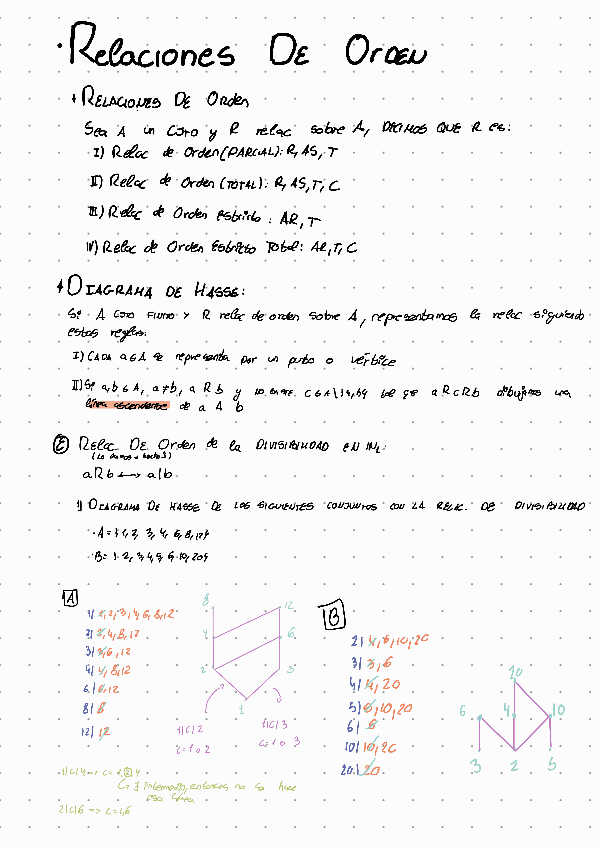 · Relaciones De Orden
+ Relaciones De Orden
Sea A un Cjto y R relac sobre A, DECIMOS QUE R es:
I) Relac de Orden (PARCIAL): R, AS, T
II) Relac de Orden (TOTAL): R, AS, T, C
III) Relac de Orden Estricto: AR, T
IV) Relac de Orden Estricto Total: AR, T, C
+ DIAGRAMA DE HASSE:
Se A Cjto Finito y R relac de orden sobre A, representamos la relac siguiendo
estas reglas:
I) CADA a∈A se representa por un punto o vértice
II) Se a,b∈A, a≠b, a R b y no existe c∈A\{a,b} tal que aRcRb dibujamos una
línea ascendente de a A b
Ⓔ Relac De Orden de la DIVISIBILIDAD EN IN:
aRb ⟷ a|b
1) DIAGRAMA DE HASSE DE LOS SIGUIENTES CONJUNTOS CON LA RELAC. DE DIVISIBILIDAD
· A = {1, 2, 3, 4, 6, 8, 12}
· B = {2, 3, 4, 5, 6, 10, 20}
A
1| 1, 2, 3, 4, 6, 8, 12
2| 2, 4, 8, 12
3| 3, 6, 12
4| 4, 8, 12
6| 6, 12
8| 8
12| 12
8 12
4 6
2 3
1
1|c|2
c=1 o 2
1|c|3
c=1 o 3
B
2| 2, 6, 10, 20
3| 3, 6
4| 4, 20
5| 5, 10, 20
6| 6
10| 10, 20
20| 20
20
6 4 10
3 2 5
1|c|4 => c=1,②,4
Intermedio, entonces no se hace
esa línea
2|c|6 => c=